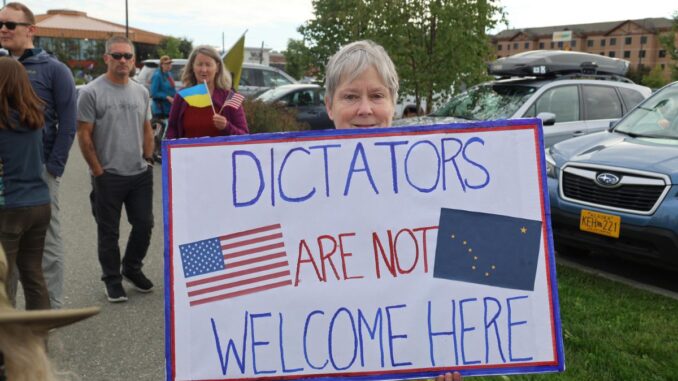 DICTATORS
ARE NOT
WELCOME HERE
KEH 221